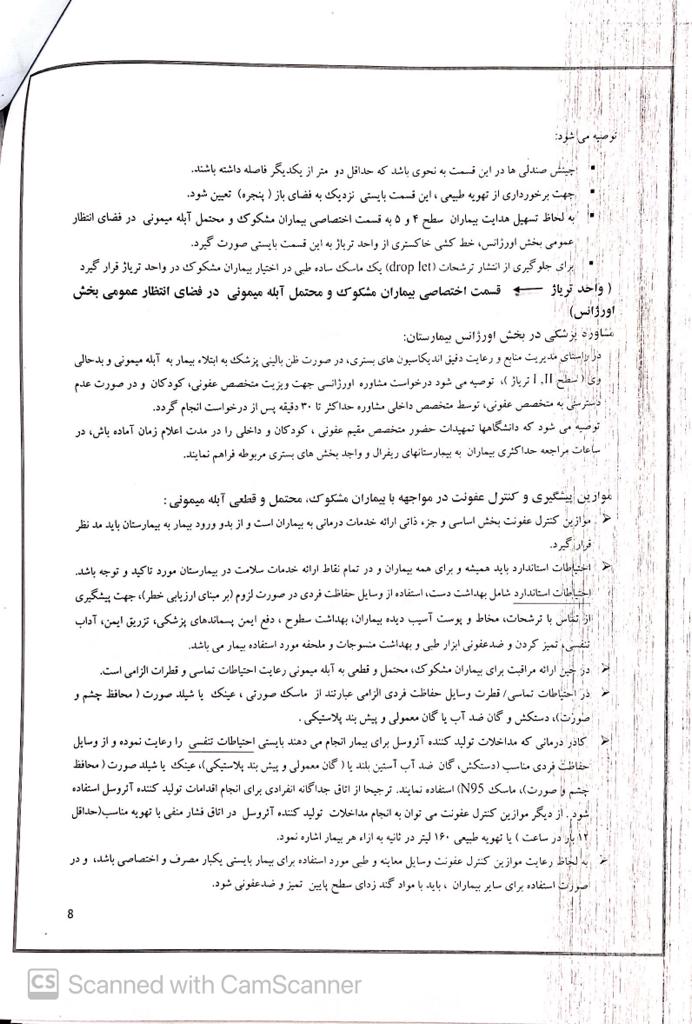 توصیه می شود:
▪ چینش صندلی ها در این قسمت به نحوی باشد که حداقل دو متر از یکدیگر فاصله داشته باشند.
▪ جهت برخورداری از تهویه طبیعی ، این قسمت بایستی نزدیک به فضای باز ( پنجره) تعیین شود.
▪ به لحاظ تسهیل هدایت بیماران سطح ۴ و ۵ به قسمت اختصاصی بیماران مشکوک و محتمل آبله میمونی در فضای انتظار
عمومی بخش اورژانس، خط کشی خاکستری از واحد تریاژ به این قسمت بایستی صورت گیرد.
▪ برای جلوگیری از انتشار ترشحات (drop let) یک ماسک ساده طبی در اختیار بیماران مشکوک در واحد تریاژ قرار گیرد
( واحد تریاژ ← قسمت اختصاصی بیماران مشکوک و محتمل آبله میمونی در فضای انتظار عمومی بخش
اورژانس)
مشاوره پزشکی در بخش اورژانس بیمارستان:
در راستای مدیریت منابع و رعایت دقیق اندیکاسیون های بستری، در صورت ظن بالینی پزشک به ابتلاء بیمار به آبله میمونی و بدحالی
وی ( سطح I, II تریاژ )، توصیه می شود درخواست مشاوره اورژانسی جهت ویزیت متخصص عفونی، کودکان و در صورت عدم
دسترسی به متخصص عفونی، توسط متخصص داخلی مشاوره حداکثر تا ۳۰ دقیقه پس از درخواست انجام گردد.
توصیه می شود که دانشگاهها تمهیدات حضور متخصص مقیم عفونی ، کودکان و داخلی را در مدت اعلام زمان آماده باش، در
ساعات مراجعه حداکثری بیماران به بیمارستانهای ریفرال و واجد بخش های بستری مربوطه فراهم نمایند.
موازین پیشگیری و کنترل عفونت در مواجهه با بیماران مشکوک، محتمل و قطعی آبله میمونی :
➢ موازین کنترل عفونت بخش اساسی و جزء ذاتی ارائه خدمات درمانی به بیماران است و از بدو ورود بیمار به بیمارستان باید مد نظر
قرار گیرد.
➢ احتیاطات استاندارد باید همیشه و برای همه بیماران و در تمام نقاط ارائه خدمات سلامت در بیمارستان مورد تاکید و توجه باشد.
احتیاطات استاندارد شامل بهداشت دست، استفاده از وسایل حفاظت فردی در صورت لزوم (بر مبنای ارزیابی خطر)، جهت پیشگیری
از تماس با ترشحات، مخاط و پوست آسیب دیده بیماران، بهداشت سطوح ، دفع ایمن پسماندهای پزشکی، تزریق ایمن، آداب
تنفسی، تمیز کردن و ضدعفونی ابزار طبی و بهداشت منسوجات و ملحفه مورد استفاده بیمار می باشد.
➢ در حین ارائه مراقبت برای بیماران مشکوک، محتمل و قطعی به آبله میمونی رعایت احتیاطات تماسی و قطرات الزامی است.
➢ در احتیاطات تماسی/ قطرت وسایل حفاظت فردی الزامی عبارتند از ماسک صورتی ، عینک یا شیلد صورت ( محافظ چشم و
صورت)، دستکش و گان ضد آب یا گان معمولی و پیش بند پلاستیکی .
➢ کادر درمانی که مداخلات تولید کننده آئروسل برای بیمار انجام می دهند بایستی احتیاطات تنفسی را رعایت نموده و از وسایل
حفاظت فردی مناسب (دستکش، گان ضد آب آستین بلند یا ( گان معمولی و پیش بند پلاستیکی)، عینک یا شیلد صورت ( محافظ
چشم و صورت)، ماسک N95) استفاده نمایند. ترجیحا از اتاق جداگانه انفرادی برای انجام اقدامات تولید کننده آئروسل استفاده
شود . از دیگر موازین کنترل عفونت می توان به انجام مداخلات تولید کننده آئروسل در اتاق فشار منفی با تهویه مناسب(حداقل
۱۲ بار در ساعت ) یا تهویه طبیعی ۱۶۰ لیتر در ثانیه به ازاء هر بیمار اشاره نمود.
➢ به لحاظ رعایت موازین کنترل عفونت وسایل معاینه و طبی مورد استفاده برای بیمار بایستی یکبار مصرف و اختصاصی باشد، و در
صورت استفاده برای سایر بیماران ، باید با مواد گند زدای سطح پایین تمیز و ضدعفونی شود.
8
CS Scanned with CamScanner